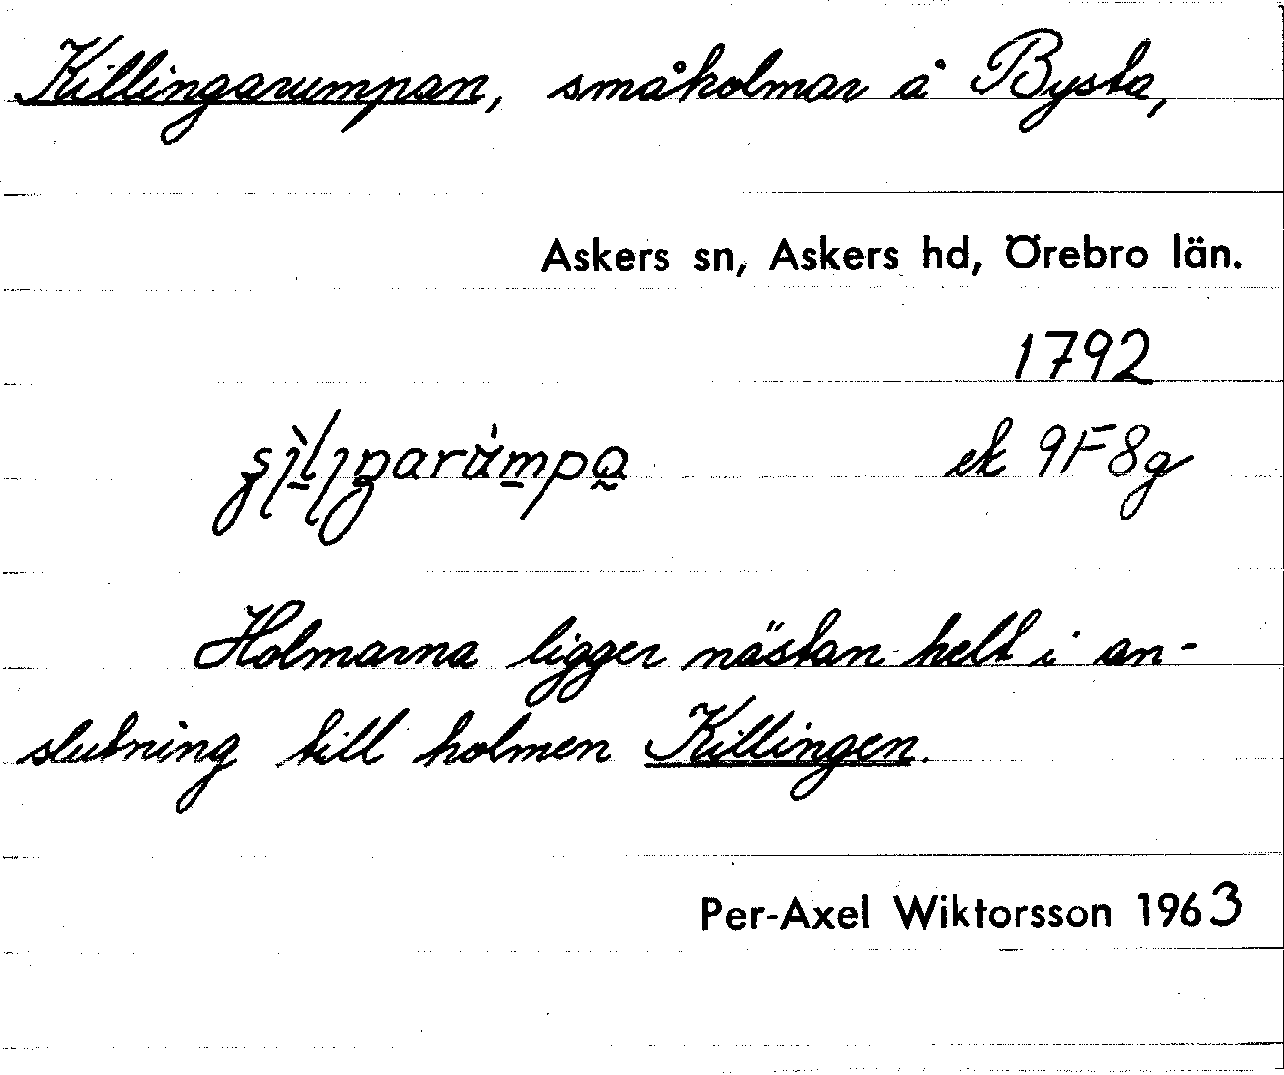 Killingarumpan, småholmar å Bysta,
Askers sn, Askers hd, Örebro län.
1792
ek 9F8g
Holmarna ligger nästan helt i an-
slutning till holmen Killingen.
Per-Axel Wiktorsson 1963